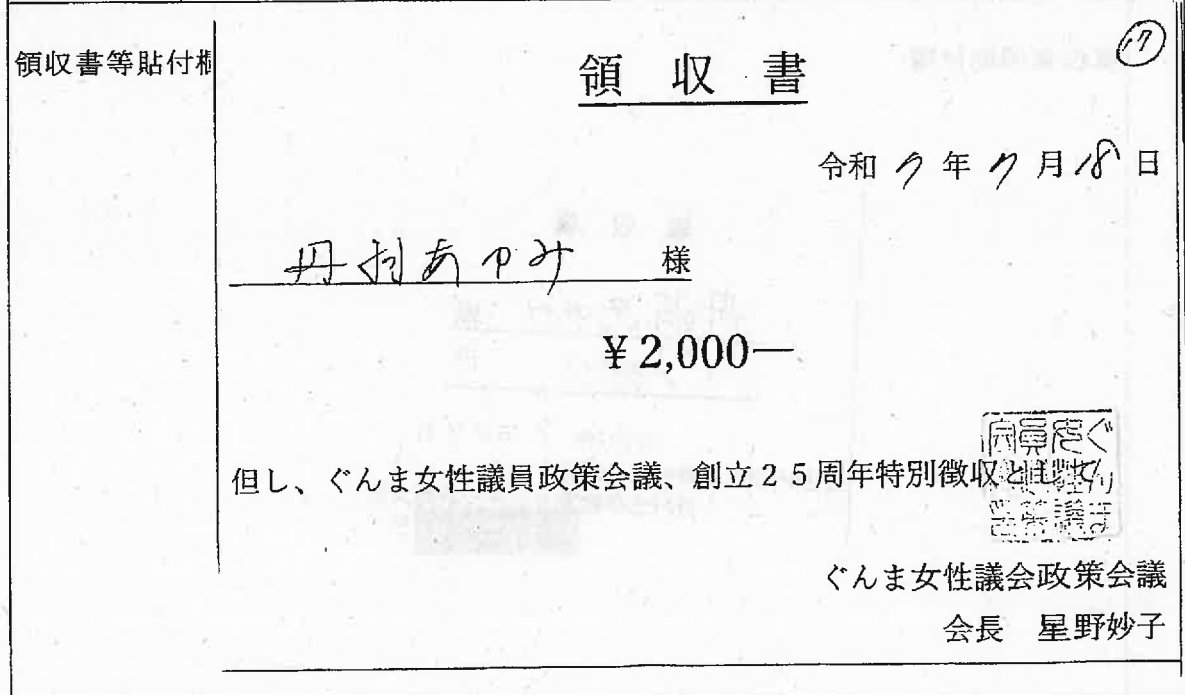 ⑰
領収書等貼付欄
領 収 書
令和 7 年 7 月 18 日
丹羽あゆみ 様
¥2,000―
但し、ぐんま女性議員政策会議、創立２５周年特別徴収として
ぐんま女性議会政策会議
会長 星野妙子